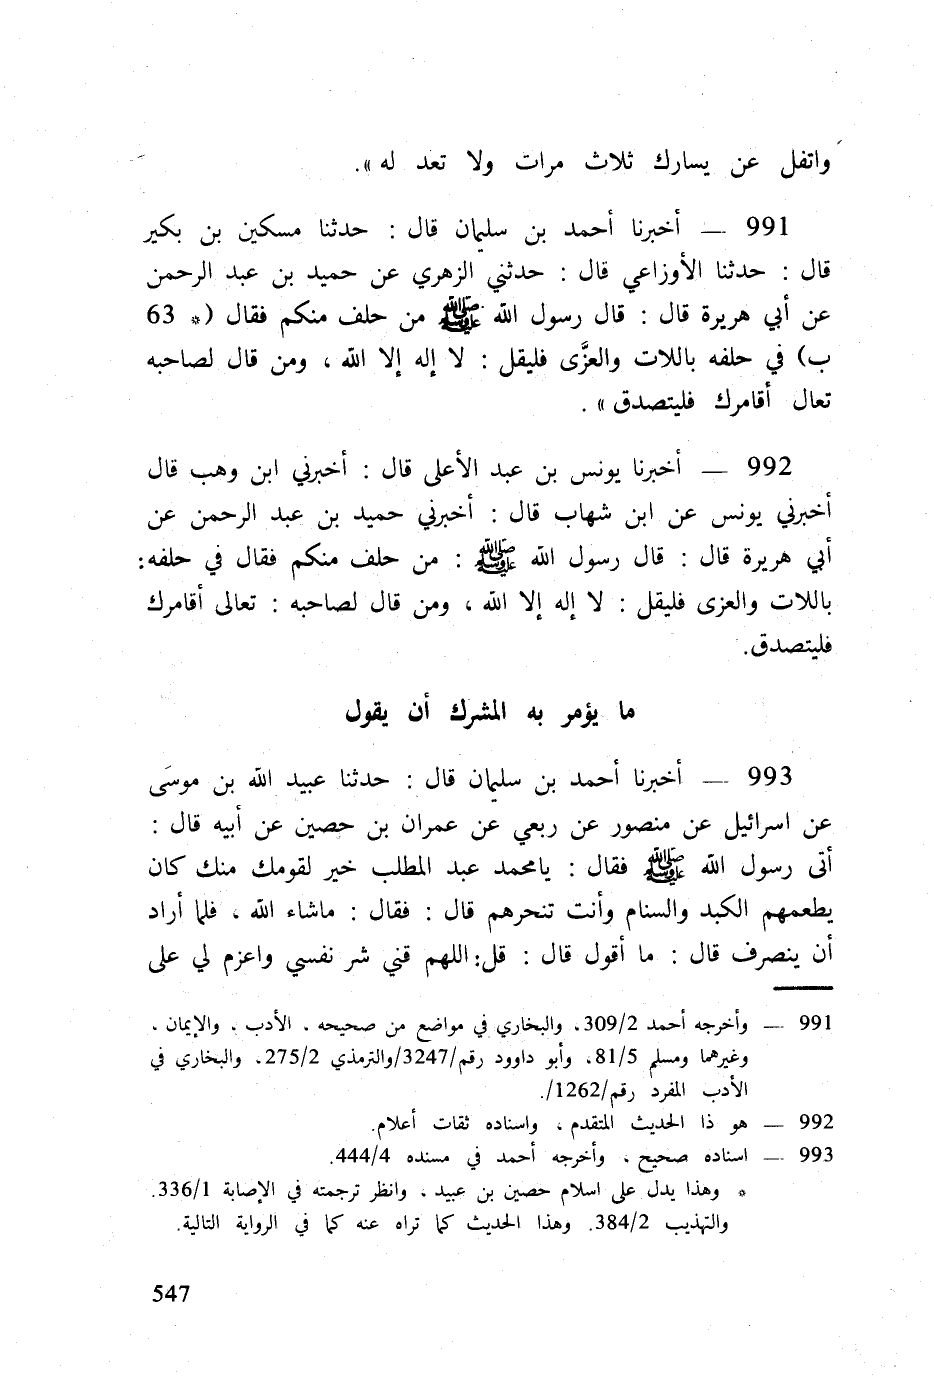 واتفل عن يسارك ثلاث مرات ولا تعد له».
991 — أخبرنا أحمد بن سليمان قال : حدثنا مسكين بن بكير
قال : حدثنا الأوزاعي قال : حدثني الزهري عن حميد بن عبد الرحمن
عن أبي هريرة قال : قال رسول الله ﷺ من حلف منكم فقال (* 63
ب) في حلفه باللات والعزَّى فليقل : لا إله إلا الله ، ومن قال لصاحبه
تعال أقامرك فليتصدق » .
992 — أخبرنا يونس بن عبد الأعلى قال : أخبرني ابن وهب قال
أخبرني يونس عن ابن شهاب قال : أخبرني حميد بن عبد الرحمن عن
أبي هريرة قال : قال رسول الله ﷺ : من حلف منكم فقال في حلفه:
باللات والعزى فليقل : لا إله إلا الله ، ومن قال لصاحبه : تعالى أقامرك
فليتصدق.
ما يؤمر به المشرك أن يقول
993 — أخبرنا أحمد بن سليمان قال : حدثنا عبيد الله بن موسَى
عن اسرائيل عن منصور عن ربعي عن عمران بن حصين عن أبيه قال :
أتى رسول الله ﷺ فقال : يامحمد عبد المطلب خير لقومك منك كان
يطعمهم الكبد والسنام وأنت تنحرهم قال : فقال : ماشاء الله ، فلما أراد
أن ينصرف قال : ما أقول قال : قل: اللهم قني شر نفسي واعزم لي على
991 — وأخرجه أحمد 309/2، والبخاري في مواضع من صحيحه . الأدب . والإيمان .
وغيرهما ومسلم 81/5، وأبو داوود رقم/3247/والترمذي 275/2. والبخاري في
الأدب المفرد رقم/1262/.
992 — هو ذا الحديث المتقدم ، واسناده ثقات أعلام.
993 — اسناده صحيح ، وأخرجه أحمد في مسنده 444/4.
* وهذا يدل على اسلام حصين بن عبيد ، وانظر ترجمته في الإصابة 336/1.
والتهذيب 384/2. وهذا الحديث كما تراه عنه كما في الرواية التالية.
547